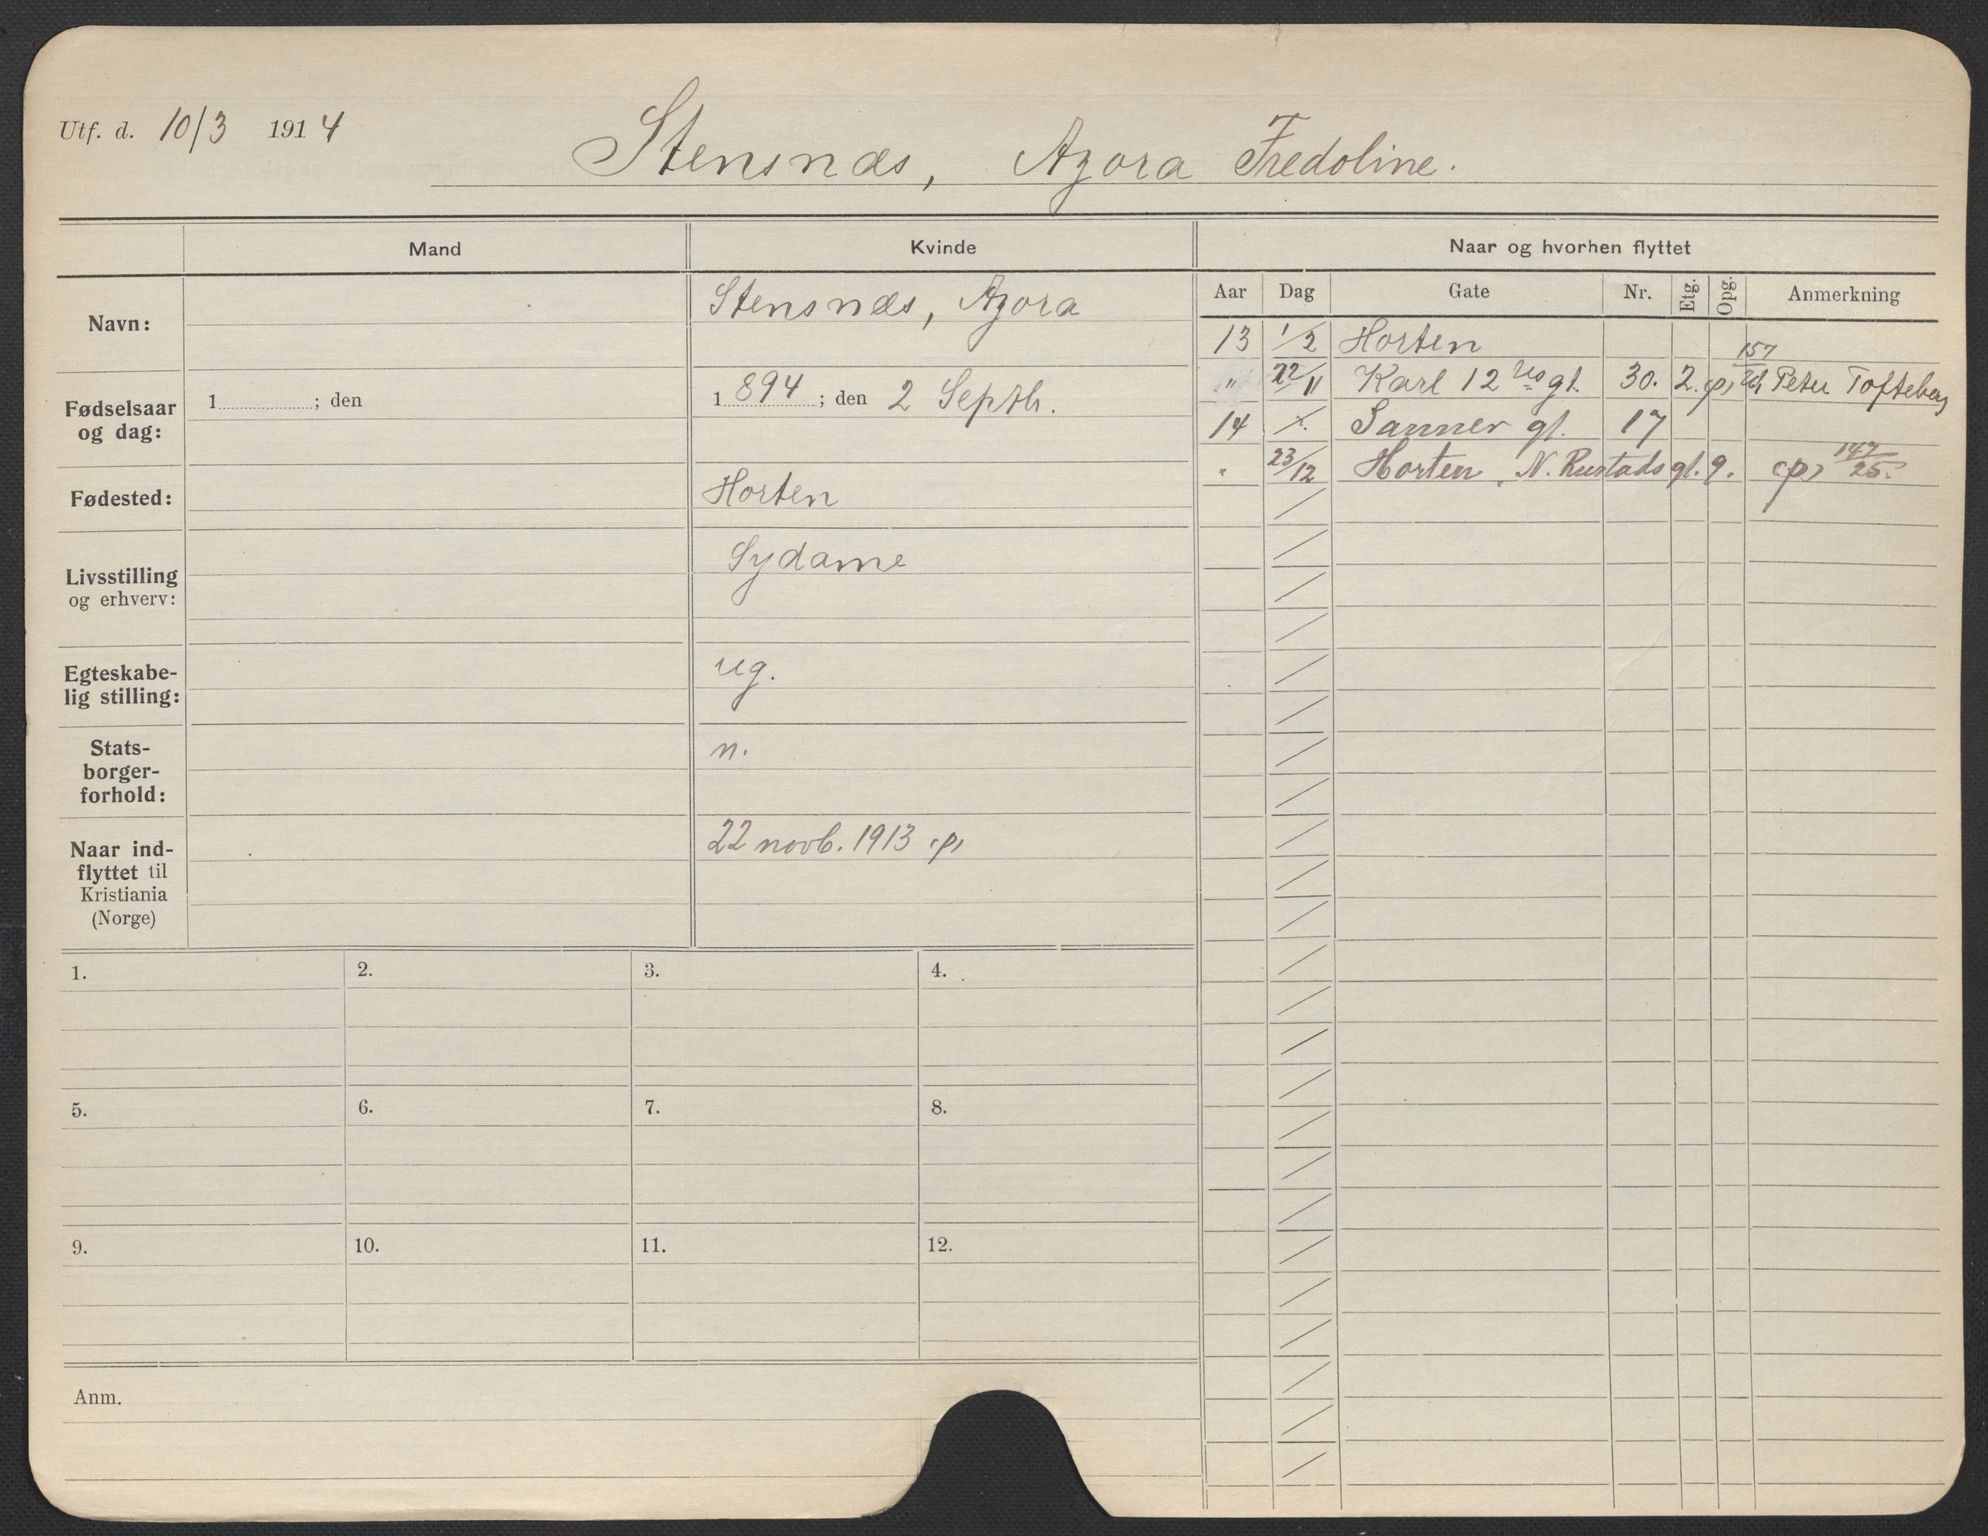 Utf. d. 10/3 1914
Stensnæs, Azora Fredoline.
Mand
Kvinde
Naar og hvorhen flyttet
Navn:
Stensnæs, Azora
Aar Dag Gate Nr. Etg. Opg. Anmerkning
13 1/2 Horten
" 22/11 Karl 12 tes gt. 30. 2. Peter Tofteberg
157
14 Sanner gt. 17
" 23/12 Horten, N. Rustads gt. 9. (p) 147/25.
Fødselsaar og dag:
1 ; den
1 894 ; den 2 Septb.
Fødested:
Horten
Livsstilling og erhverv:
Sydame
Egteskabe-
lig stilling:
ug.
Stats-
borger-
forhold:
n.
Naar ind-
flyttet til
Kristiania
(Norge)
22 novb. 1913 (p)
1. 2. 3. 4.
5. 6. 7. 8.
9. 10. 11. 12.
Anm.